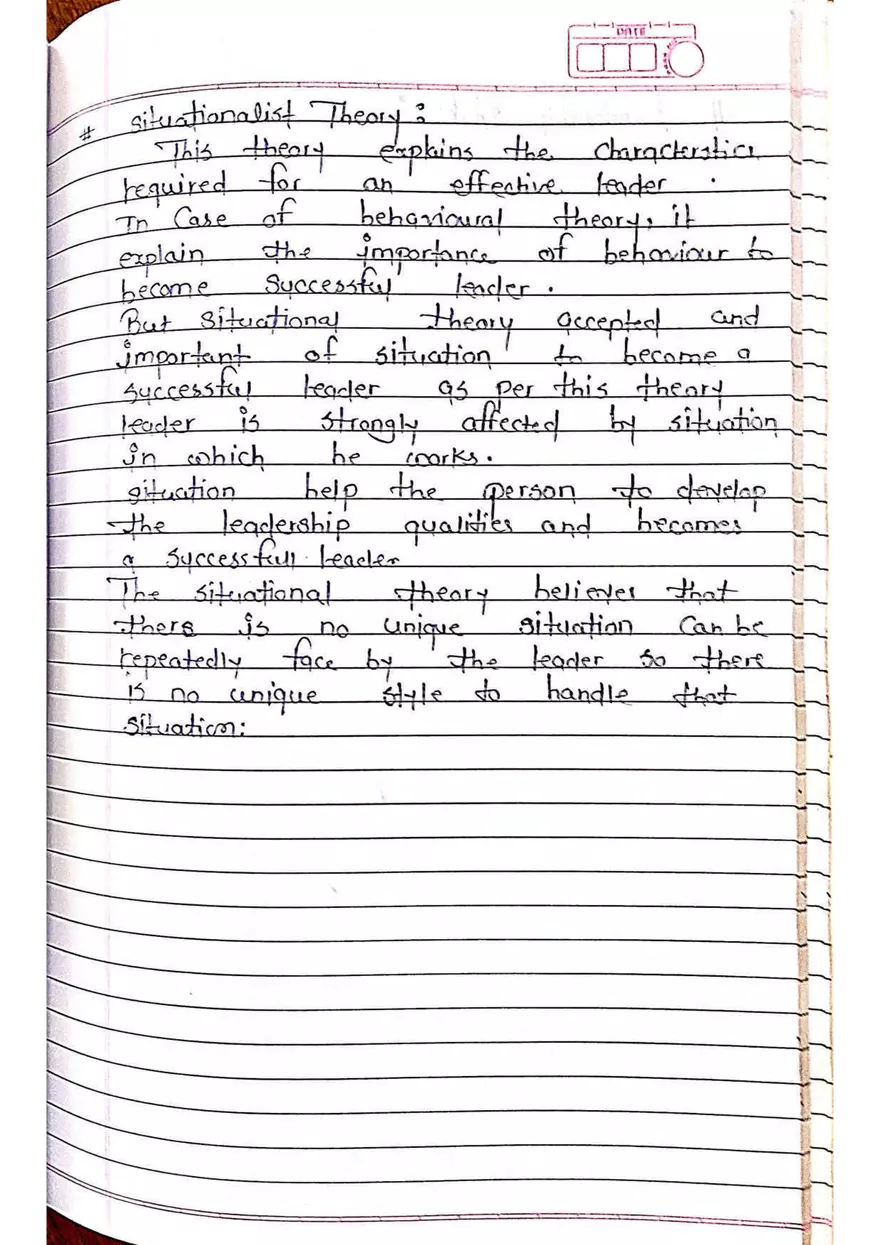 DATE
# Situationalist Theory:
This theory explains the characterstics
required for an effective leader.
In Case of behavioural theory, it
explain the importance of behaviour to
become Successful leader.
But Situational theory accepted and
important of situation to become a
successful leader as per this theory
leader is strongly affected by situation
in which he works.
situation help the person to develop
the leadership qualities and becomes
a successfull leader
The situational theory believes that
there is no unique situation can be
repeatedly face by the leader so there
is no unique style to handle that
situation: